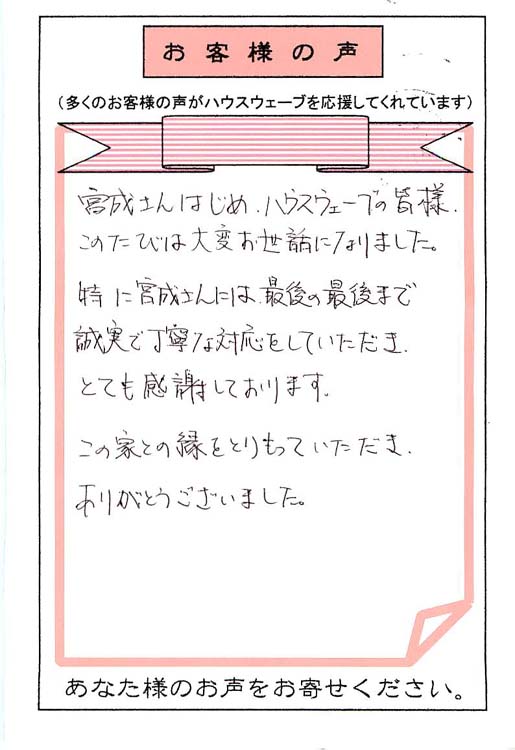 お客様の声
(多くのお客様の声がハウスウェーブを応援してくれています)
宮成さんはじめ、ハウスウェーブの皆様、
このたびは大変お世話になりました。
特に宮成さんには、最後の最後まで
誠実で丁寧な対応をしていただき、
とても感謝しております。
この家との縁をとりもっていただき、
ありがとうございました。
あなた様のお声をお寄せください。